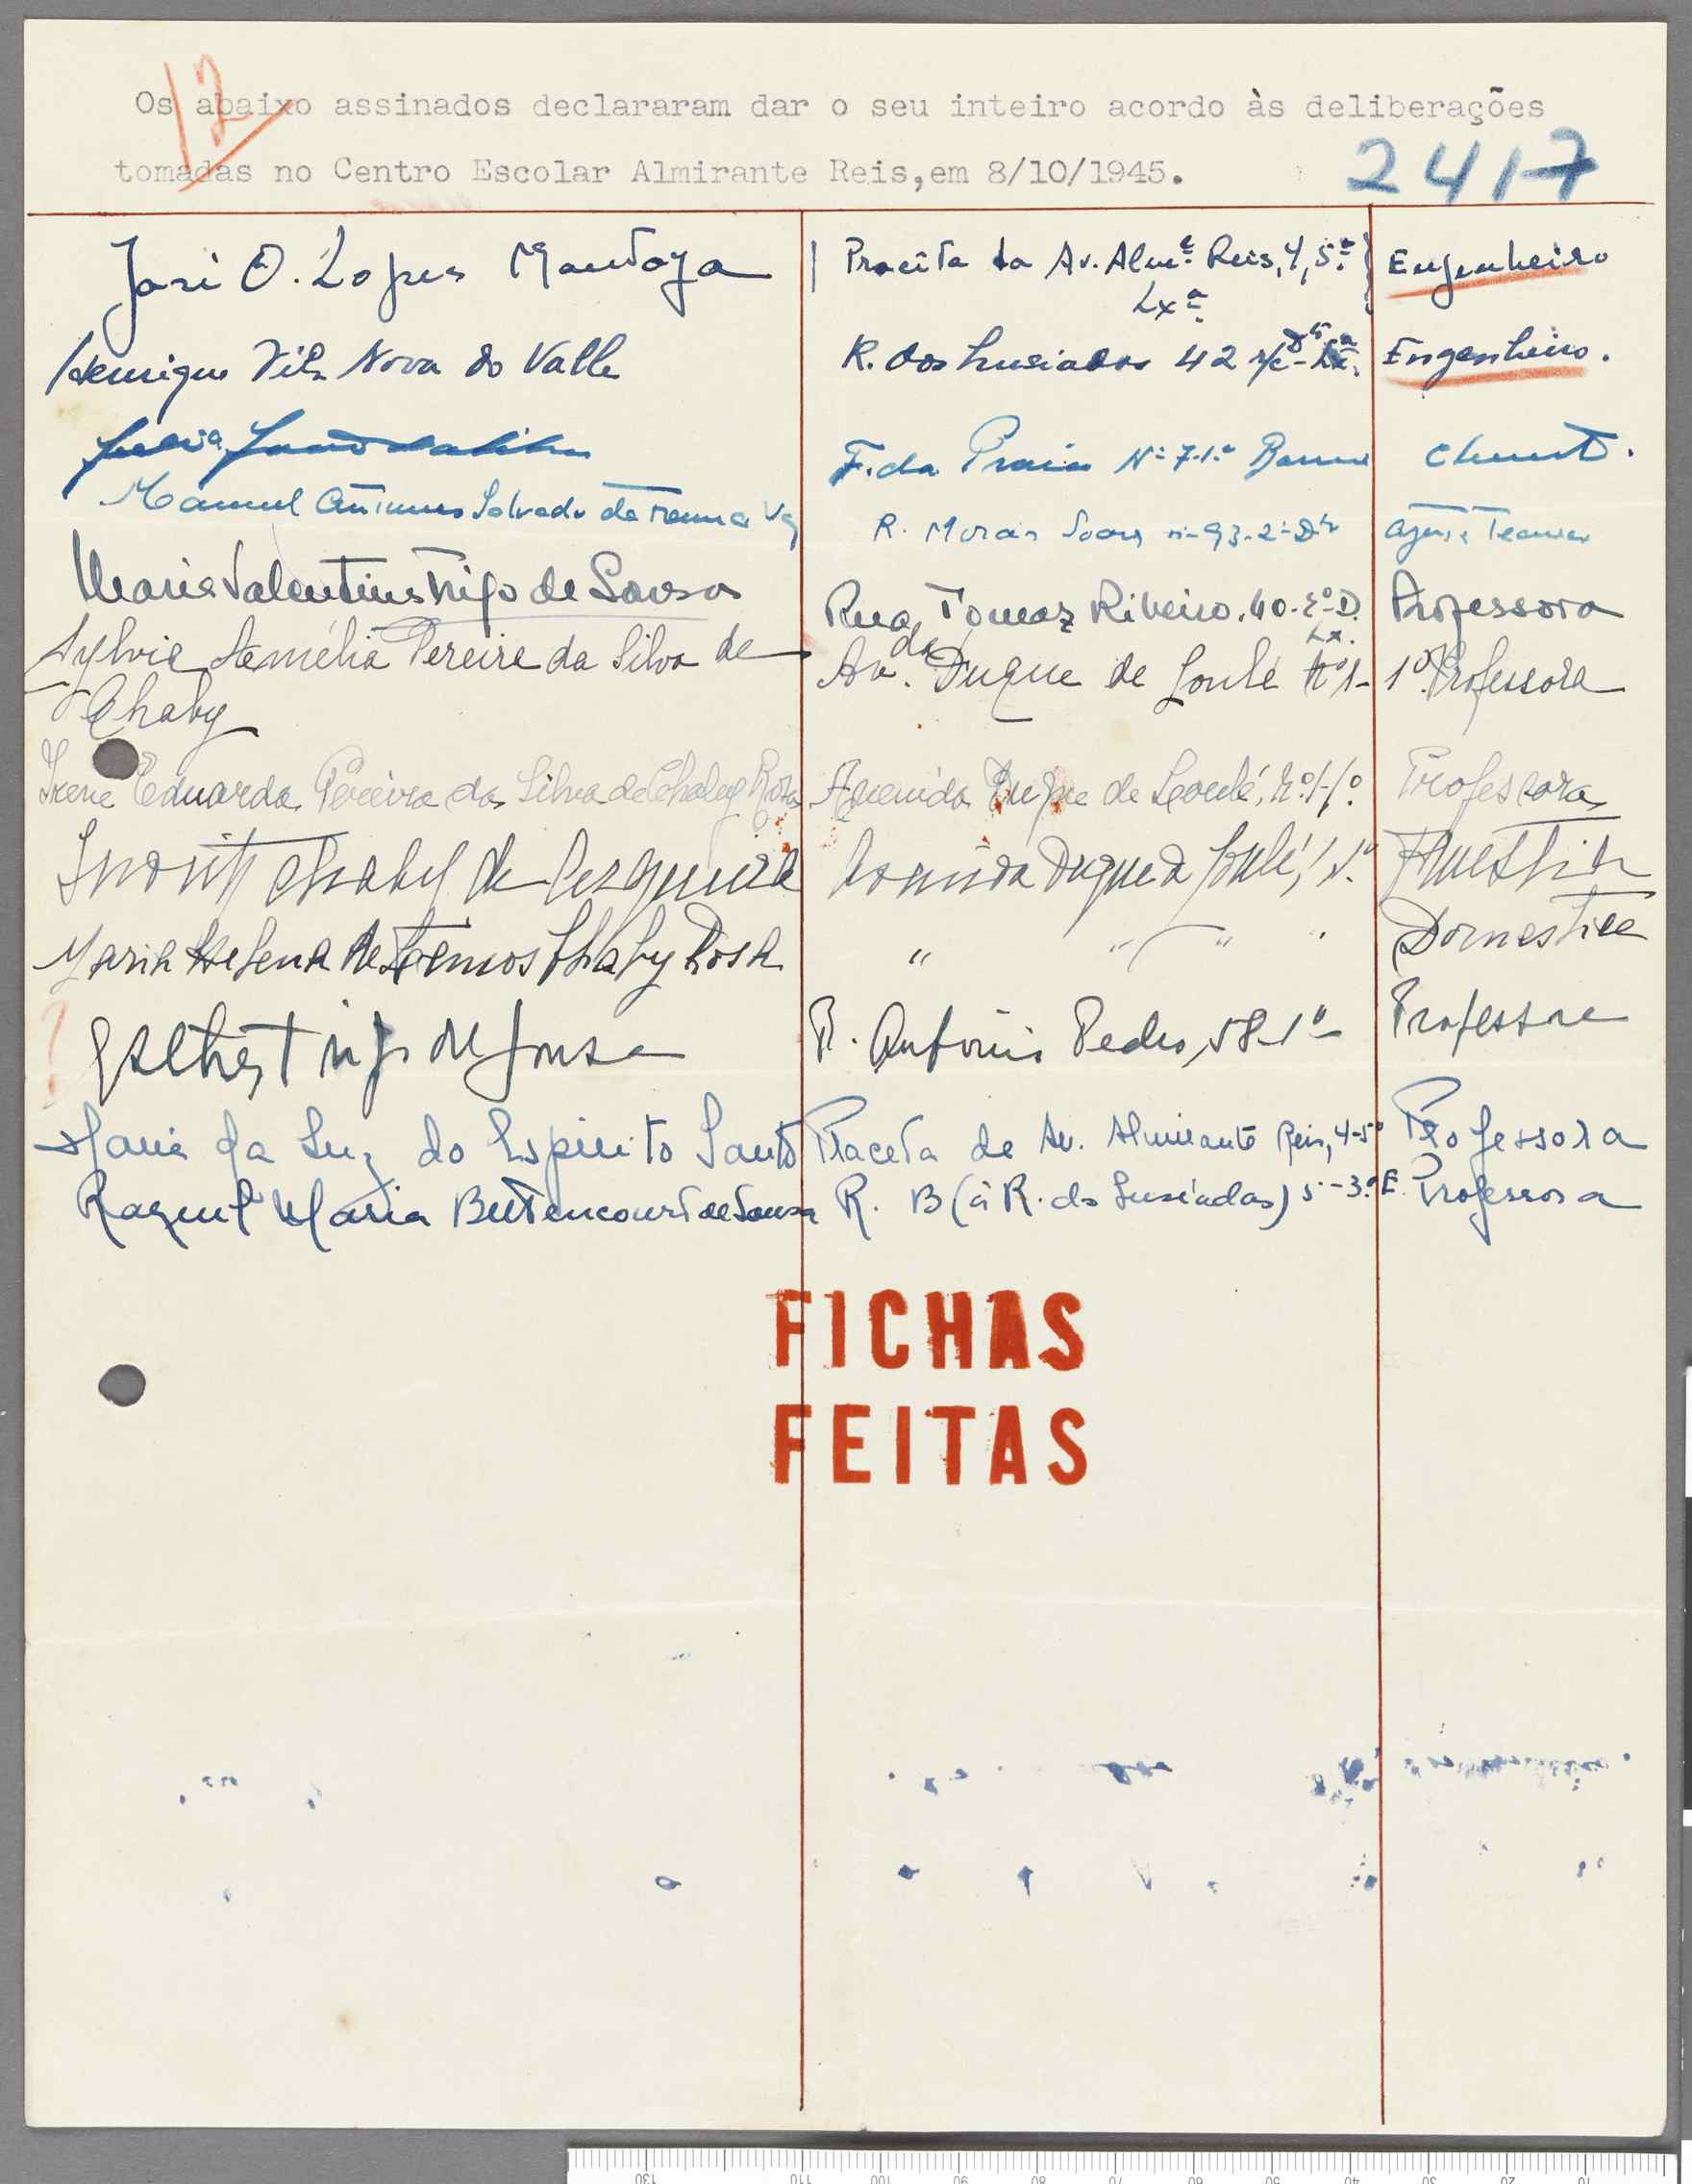 12
Os abaixo assinados declararam dar o seu inteiro acordo às deliberações
tomadas no Centro Escolar Almirante Reis,em 8/10/1945.
2417
José O. Lopes Mendoza Praceta da Av. Alm.e Reis, 4, 5.º Engenheiro
Lx.ª
Henrique Vila Nova do Valle R. dos Lusiadas 42 r/c Dto Lx. Engenheiro.
F. da Praia Nº 7-1.º
Manuel Salvado da R. Morais Soares nº 93-2º Dto Agente Tecnico
Maria Valentina Trigo de Sousa Rua Tomaz Ribeiro, 40-2º D. Professora
Lx.
Sylvia Amélia Pereira da Silva de Av. Duque de Loulé nº 1-1º Professora
Chaby
Irene Eduarda Pereira da Silva de Chaby Rosa Avenida Duque de Loulé, nº 1-1º. Professora
Chaby de Cerqueira Avenida Duque de Loulé, 1 1º. Domestica
Maria Helena de Lemos Chaby Rosa " " " Domestica
Esther Trigo de Sousa R. António Pedro, 58-1º Professora
Maria da Luz do Espirito Santo Praceta da Av. Almirante Reis, 4-5º Professora
Raquel Maria Bettencourt de Sousa R. B (à R. dos Lusíadas) 5-3.º E. Professora
FICHAS
FEITAS
130 110 100 90 80 70 60 50 40 30 20 10